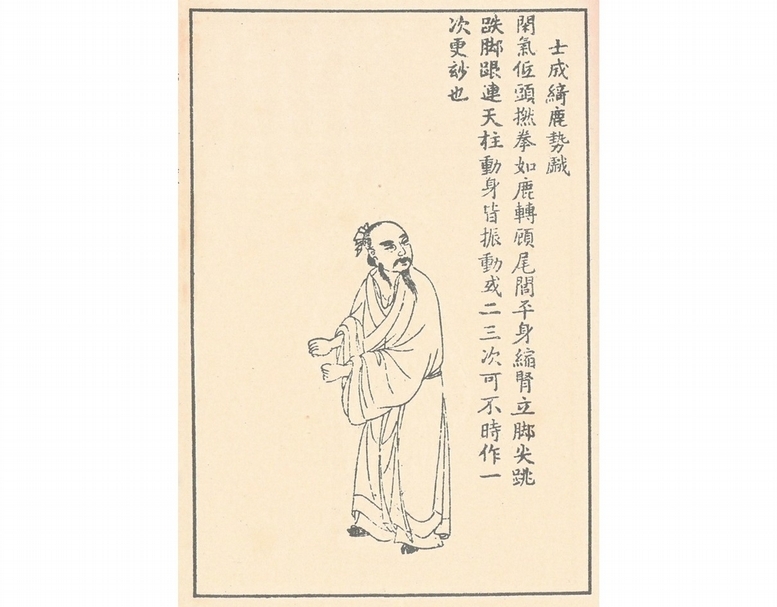 士成綺鹿勢戲
閉氣低頭撚拳如鹿轉顧尾閭平身縮腎立脚尖跳
跌脚跟連天柱動身皆振動或二三次可不時作一
次更玅也